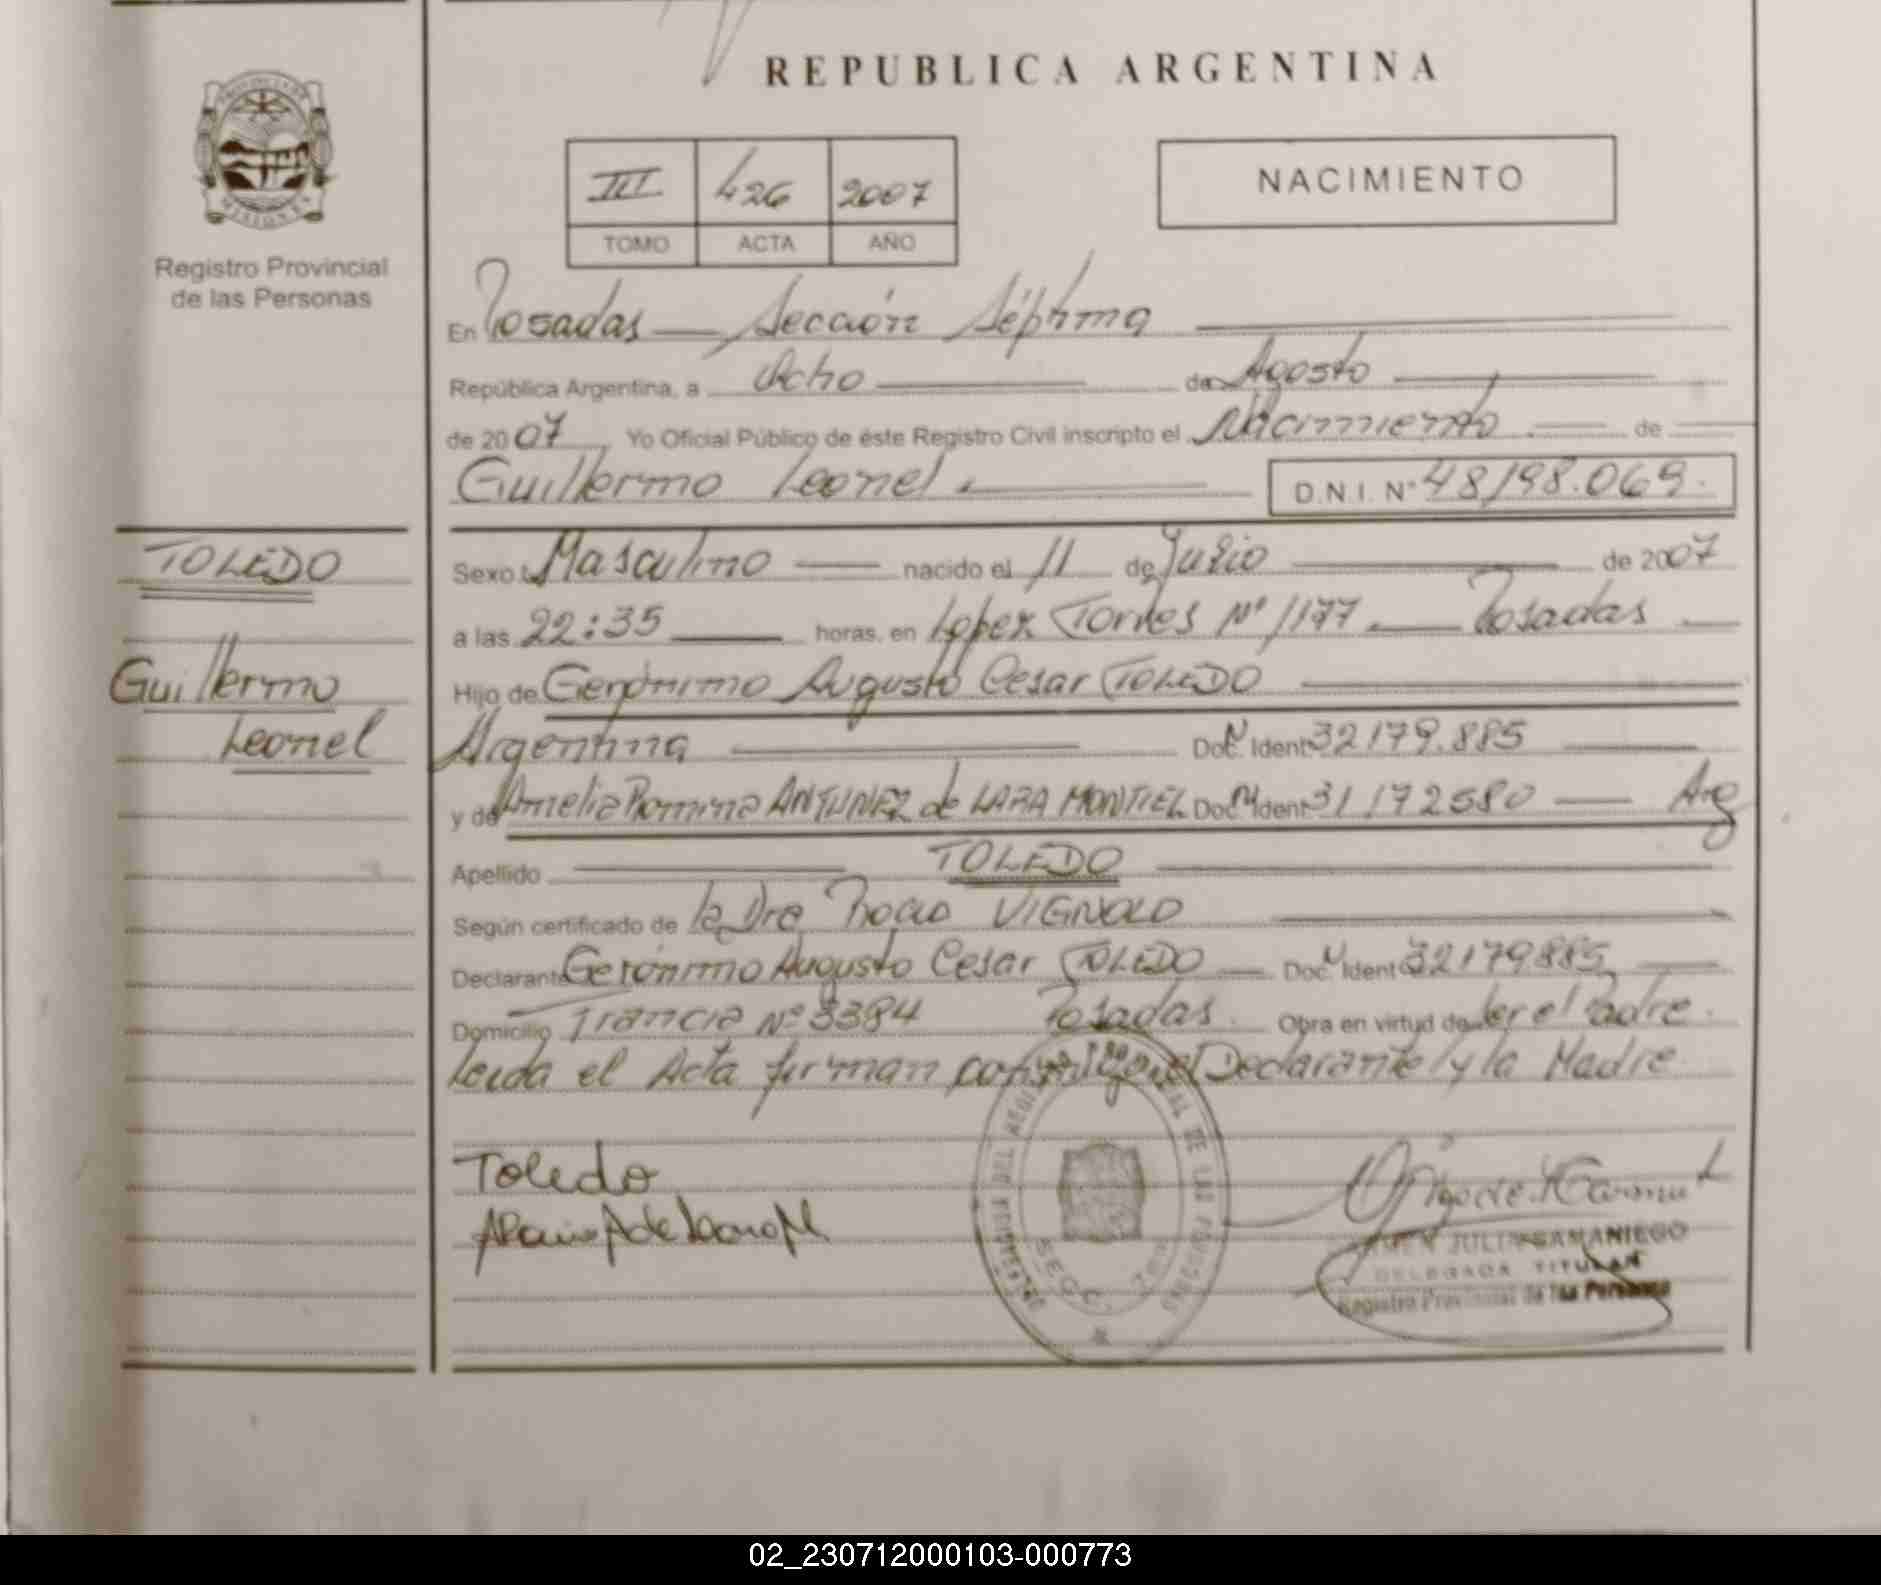 REPUBLICA ARGENTINA
PROVINCIA DE MISIONES
Registro Provincial
de las Personas
III 426 2007
TOMO ACTA AÑO
NACIMIENTO
En Posadas Sección Séptima
República Argentina, a Ocho de Agosto
de 2007 Yo Oficial Público de éste Registro Civil inscripto el Nacimiento de
Guillermo Leonel. D.N.I. Nº 48198.069.
TOLEDO
Guillermo
Leonel
Sexo Masculino nacido el 11 de Julio de 2007
a las 22:35 horas, en Lopez Torres Nº 1177. Posadas
Hijo de Gerónimo Augusto Cesar TOLEDO
Argentina Doc. Ident. 32179.885
y de Amelia Romina ANTUNEZ de LARA MONTIEL Doc. Ident. 31172580 Arg
Apellido TOLEDO
Según certificado de la Dra Rocio VIGNOLO
Declarante Gerónimo Augusto Cesar TOLEDO Doc. Ident. 32179885
Domicilio Francia Nº 3384 Posadas. Obra en virtud de ser el Padre.
Leida el Acta firman conmigo el Declarante y la Madre
Toledo
JULIA SAMANIEGO
DELEGADA TITULAR
Registro Provincial de las Personas
02_230712000103-000773